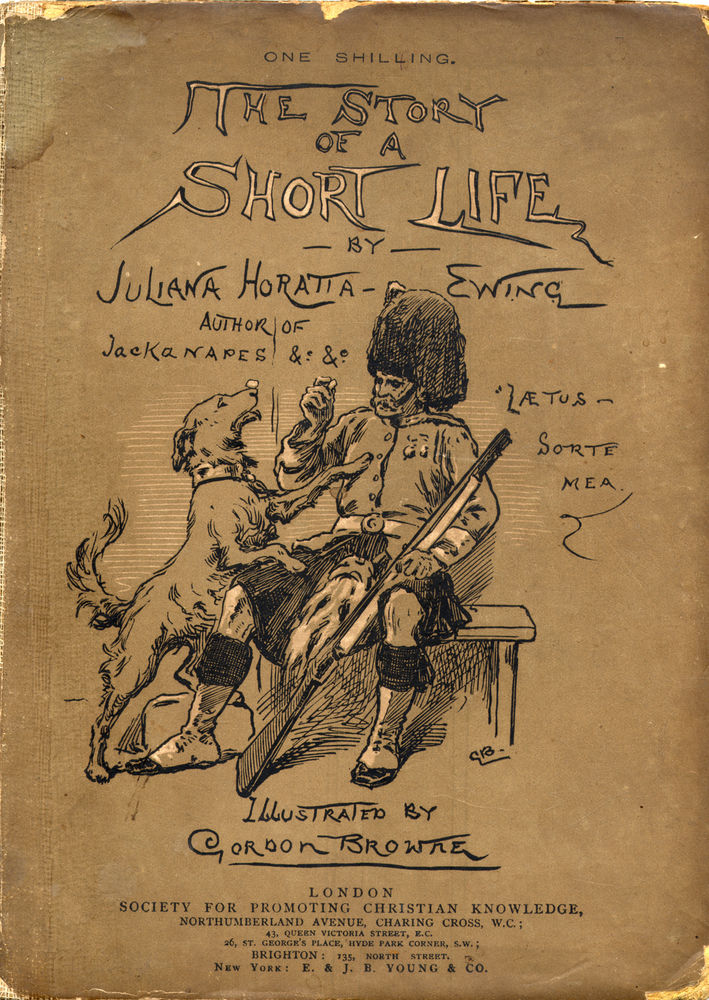 ONE SHILLING.
THE STORY
OF A
SHORT LIFE
— BY —
JULIANA HORATIA - EWING
AUTHOR OF
JACKANAPES &c &c
"LÆTUS -
SORTE
MEA.
GB.
ILLUSTRATED BY
GORDON BROWNE
LONDON
SOCIETY FOR PROMOTING CHRISTIAN KNOWLEDGE,
NORTHUMBERLAND AVENUE, CHARING CROSS, W.C.;
43, QUEEN VICTORIA STREET, E.C.
26, ST. GEORGE'S PLACE, HYDE PARK CORNER, S.W.;
BRIGHTON: 135, NORTH STREET.
NEW YORK: E. & J. B. YOUNG & CO.